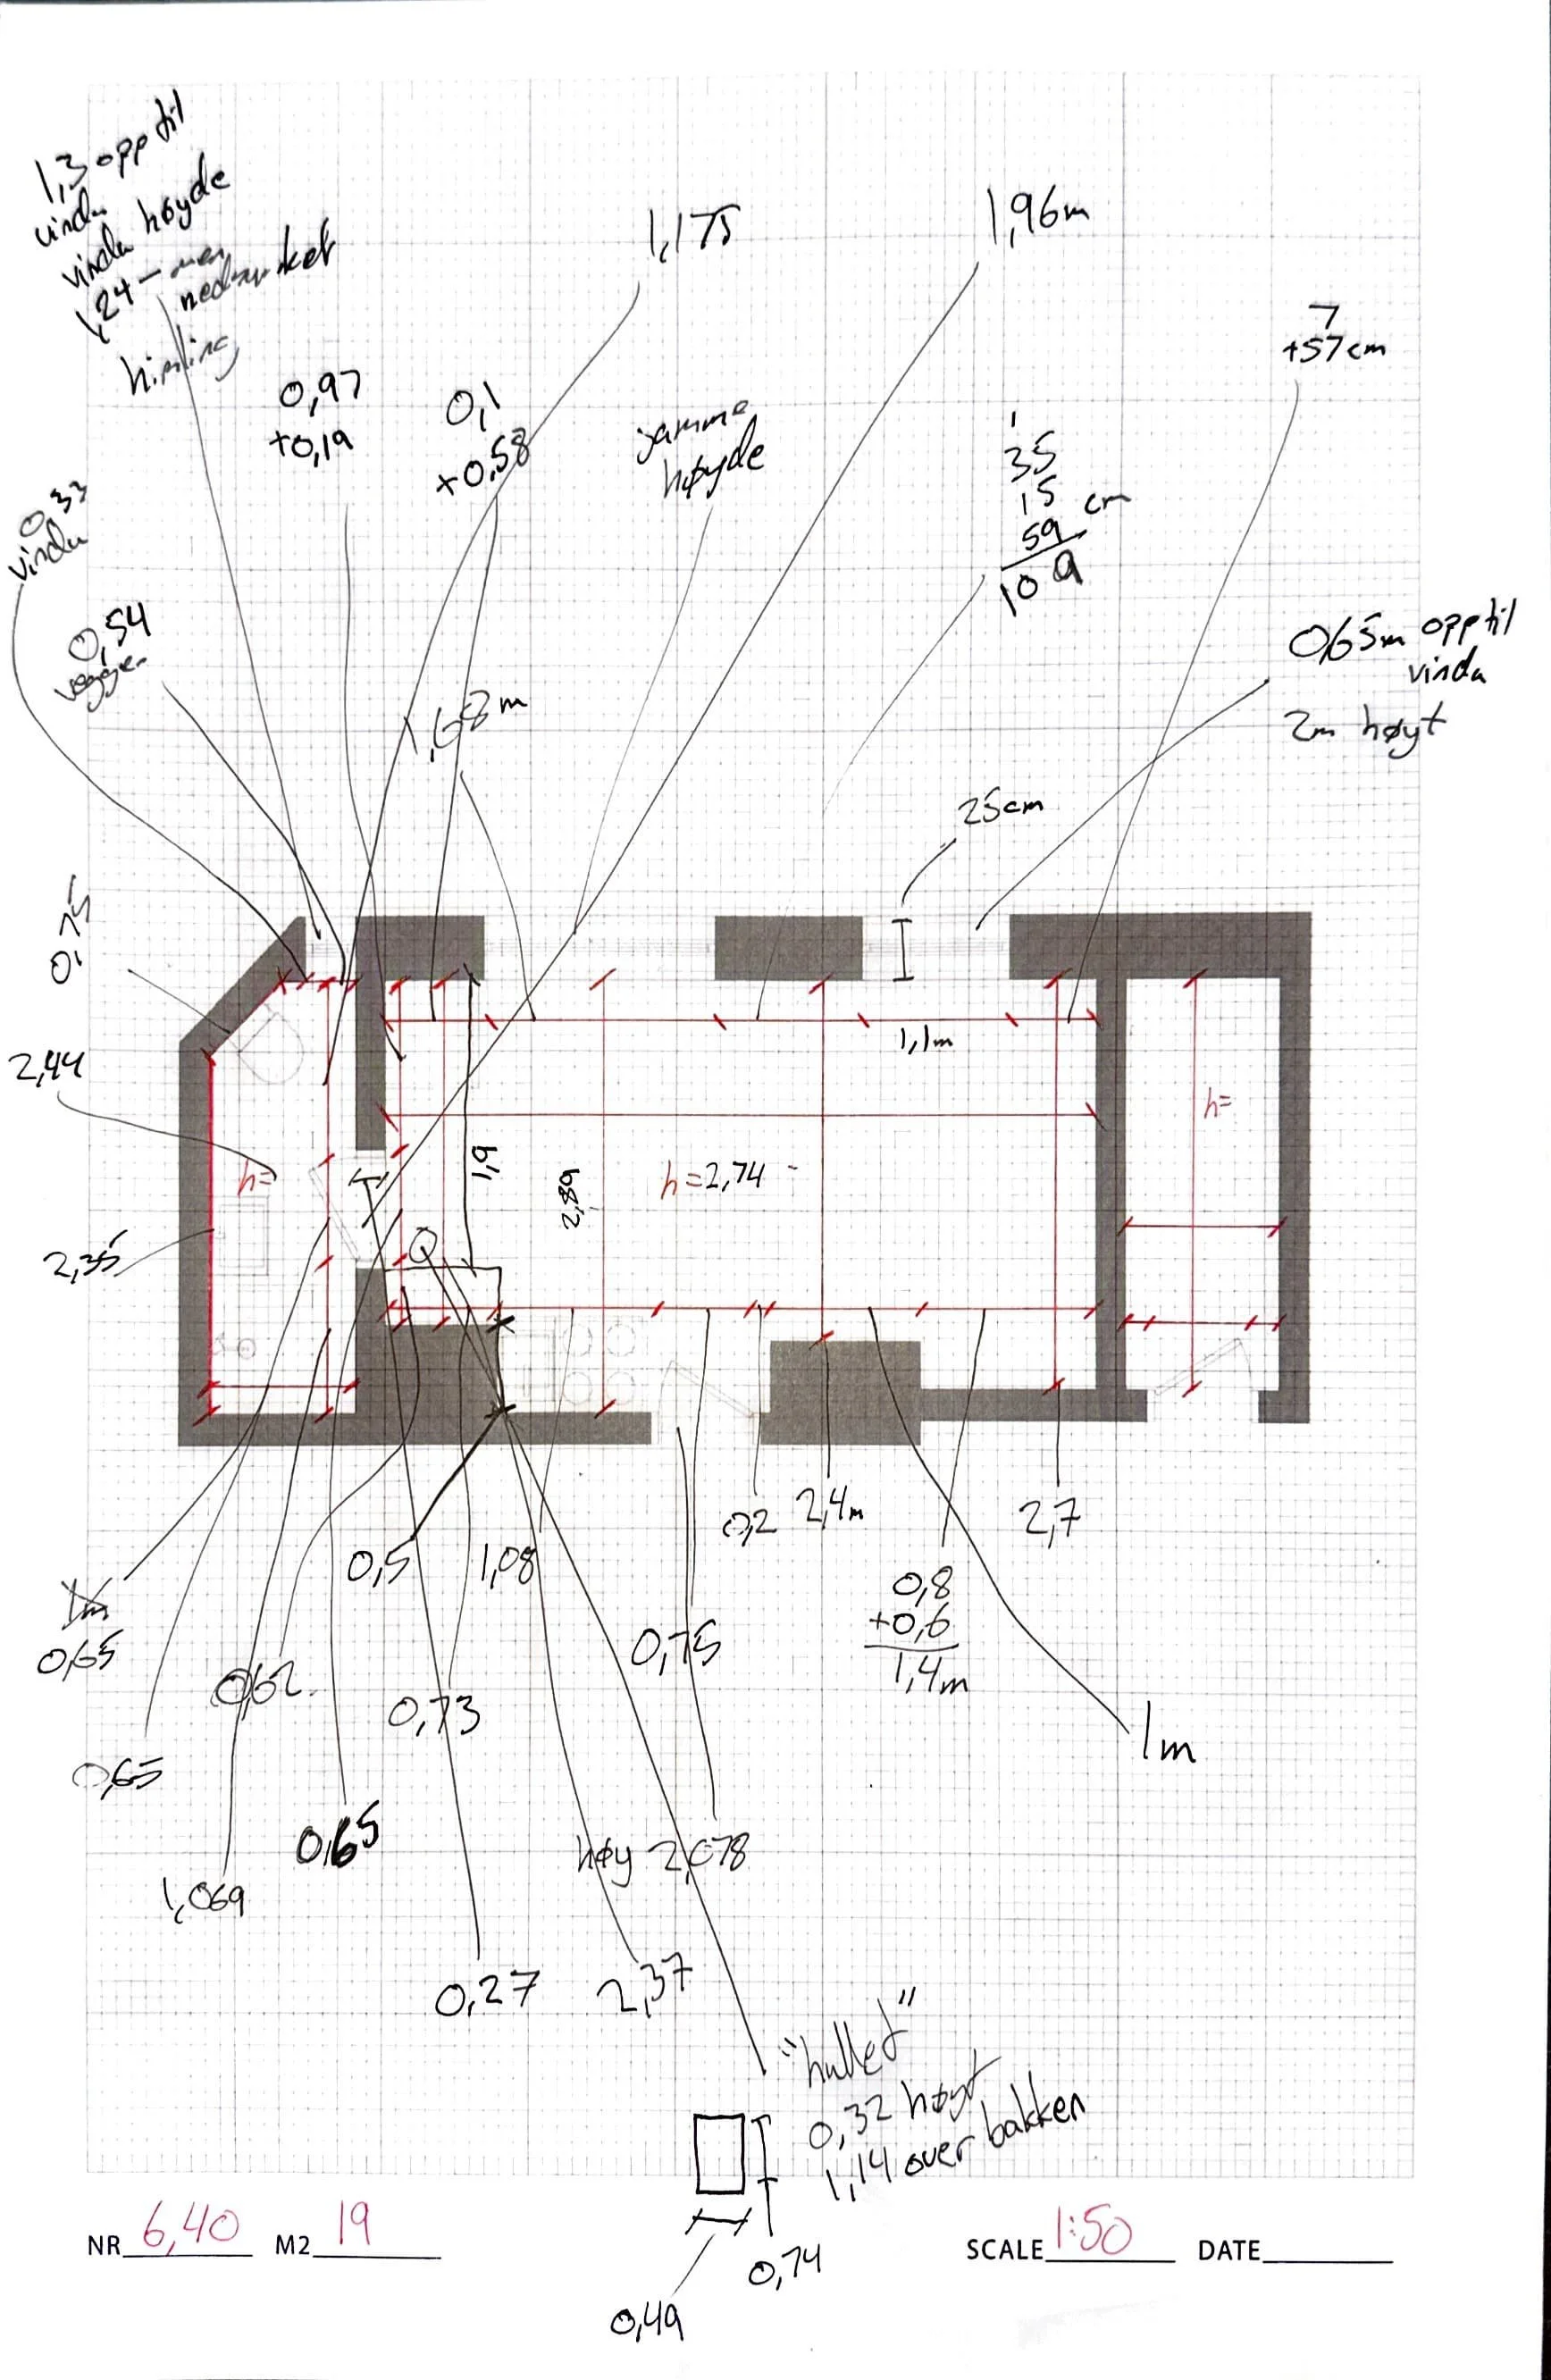 1,3 opp til
vindu
vindu høyde
1,24 - men
nedsenket
himling
1,175
1,96m
7
+57cm
0,97
+0,19
0,1
+0,58
samme
høyde
35
15 cm
59
109
0,33
vindu
0,54
veggen
0,65m opp til
vindu
2m høyt
1,68m
25cm
0,75
1,1m
2,44
h=
h=
1,9
2,89
h=2,74
2,35
0,2
2,4m
2,7
0,5
1,08
1m
0,65
0,62
0,75
0,8
+0,6
1,4m
0,73
1m
0,65
0,65
høy 2,078
1,069
0,27
2,37
"hullet"
0,32 høyt
1,14 over bakken
0,74
0,49
NR 6,40 M2 19 SCALE 1:50 DATE